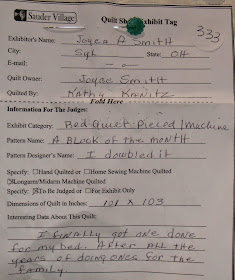 Sauder Village
Quilt Show Exhibit Tag
333
Exhibitor's Name: Joyce A Smith
City: Syl State: OH
E-mail: - o -
Quilt Owner: Joyce Smith
Quilted By: Kathy
Fold Here
Information For The Judges:
Exhibit Category: Bed Quilt-Pieced/machine
Pattern Name: A Block of the month
Pattern Designer's Name: I doubled it
Specify: ☐ Hand Quilted or ☐ Home Sewing Machine Quilted
☒ Longarm/Midarm Machine Quilted
Specify: ☒ To Be Judged or ☐ For Exhibit Only
Dimensions of Quilt in Inches: 101 x 103
Interesting Data About This Quilt:
I finally got one done
for my bed. After all the
years of doing ones for the
family.